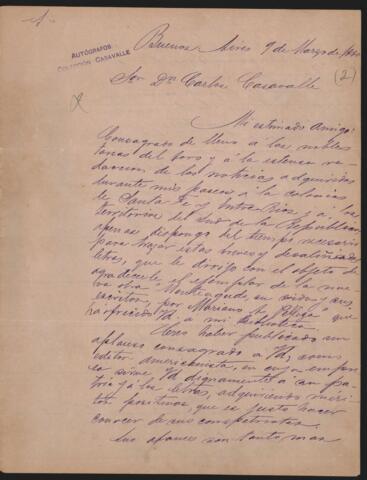 AUTÓGRAFOS
COLECCIÓN CASAVALLE
Buenos Aires 9 de Marzo de
(2)
Sor Dn Carlos Casavalle
Mi estimado Amigo:
Consagrado de lleno a las nobles
tareas del foro y á la estensa re-
daccion de las noticias adquiridas
durante mis paseos á la colonias
de Santa Fé y Entre Rios, y a los
territorios del Sud de la Republica,
apenas dispongo del tiempo necesario
para trazar estas breves y desaliñadas
letras, que le dirijo con el objeto de
agradecerle el ejemplar de la nue-
va obra "Monteagudo, su vida y sus
escritos, por Mariano A. Pelliza" que
ha ofrecido Vd. a mi biblioteca.
Creo haber publicado un
aplauso consagrado a Vd, como
editor americanista, en cuya empre-
sa sirve Vd dignamente a su pa-
tria y á las letras, adquiriendo méri-
tos positivos, que es justo hacer
conocer de sus compatriotas.
Sus afanes son tanto mas